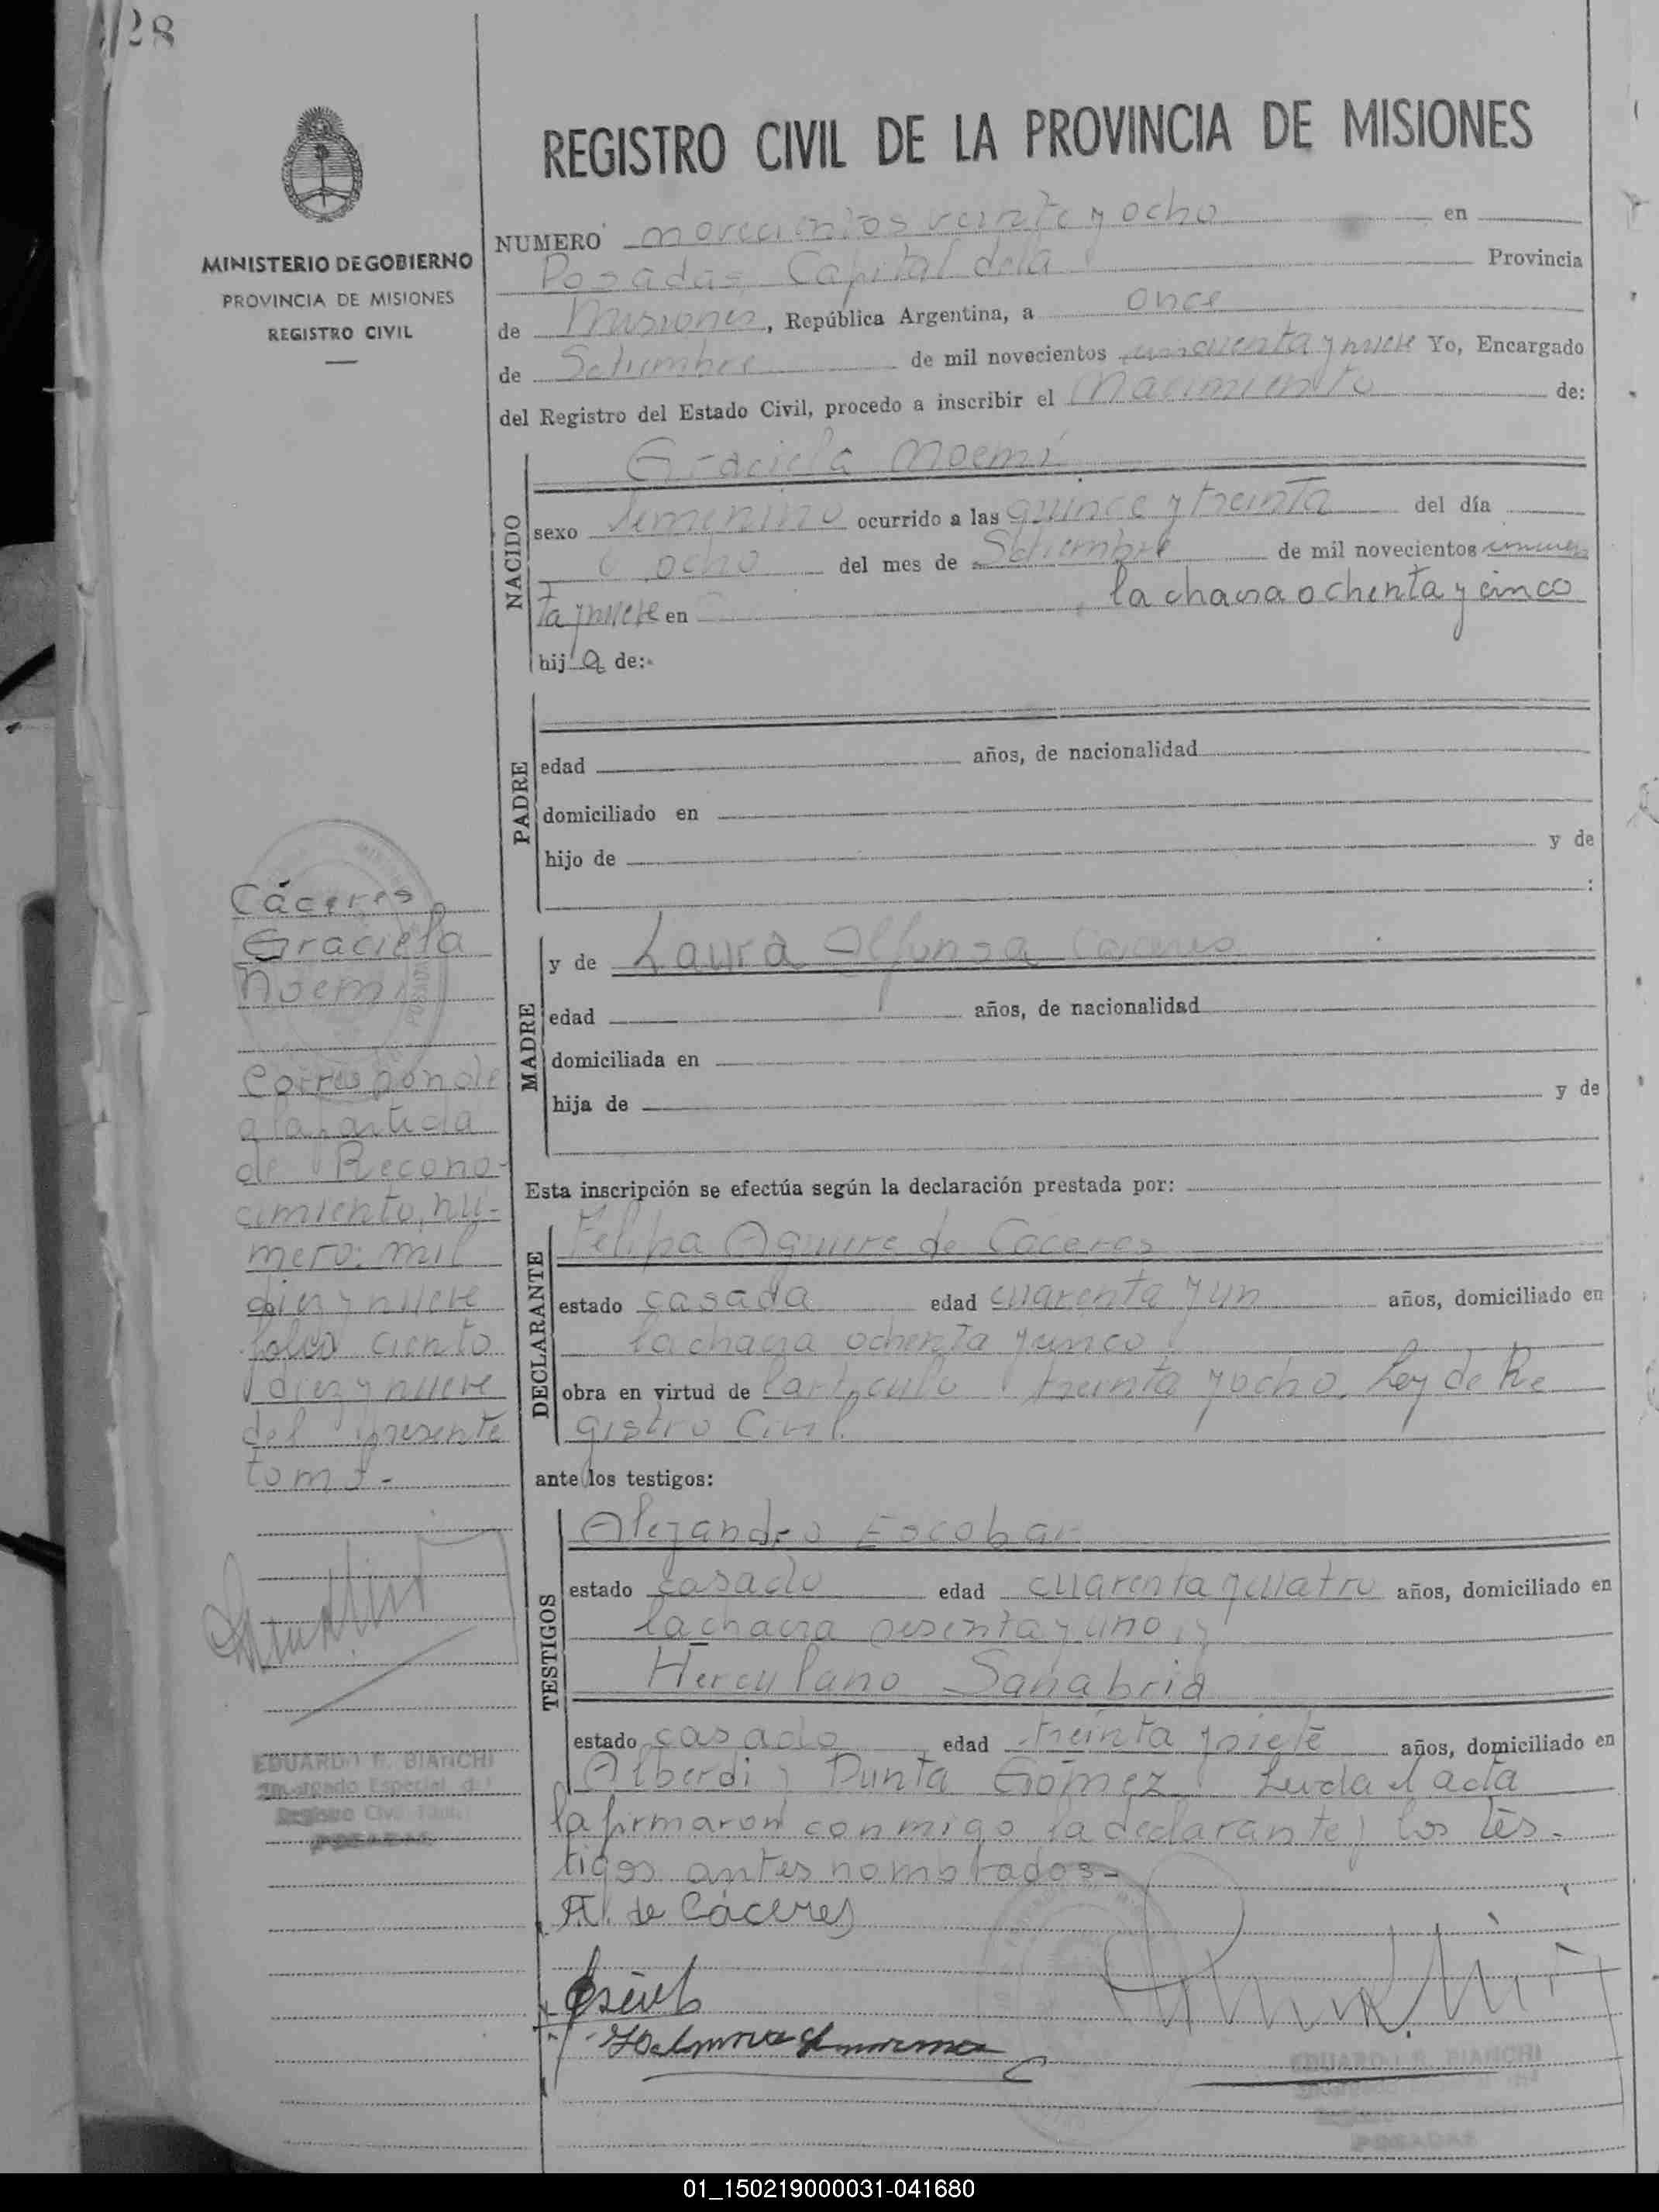 128
REGISTRO CIVIL DE LA PROVINCIA DE MISIONES
MINISTERIO DE GOBIERNO
PROVINCIA DE MISIONES
REGISTRO CIVIL
NUMERO novecientos veinte y ocho en
Posadas, Capital de la Provincia
de Misiones, República Argentina, a once
de Setiembre de mil novecientos cincuenta y nueve Yo, Encargado
del Registro del Estado Civil, procedo a inscribir el Nacimiento de:
NACIDO
Graciela Noemí
sexo femenino ocurrido a las quince y treinta del día
ocho del mes de Setiembre de mil novecientos cincuen
ta y nueve en la chacra ochenta y cinco
hija de:
PADRE
edad años, de nacionalidad
domiciliado en
hijo de y de
:
Cáceres
Graciela
Noemi
Corresponde
a la partida
de Recono-
cimiento, nú-
mero: mil
diez y nueve
folio ciento
diez y nueve
del presente
tomo.-
EDUARDO R. BIANCHI
Encargado Especial del
Registro Civil
POSADAS
MADRE
y de Laura Alfonsa Cáceres
edad años, de nacionalidad
domiciliada en
hija de y de
Esta inscripción se efectúa según la declaración prestada por:
DECLARANTE
Felipa Aguirre de Cáceres
estado casada edad cuarenta y un años, domiciliado en
la chacra ochenta y cinco
obra en virtud de l'artículo treinta y ocho, Ley de Re
gistro Civil.
ante los testigos:
TESTIGOS
Alejandro Escobar
estado casado edad cuarenta y cuatro años, domiciliado en
la chacra sesenta y uno, y
Herculano Sanabria
estado casado edad treinta y siete años, domiciliado en
Alberdi y Punta Gómez Leida l acta
la firmaron conmigo la declarante y los tes-
tigos antes nombrados.-
A. de Cáceres
EDUARDO R. BIANCHI
POSADAS
01_150219000031-041680